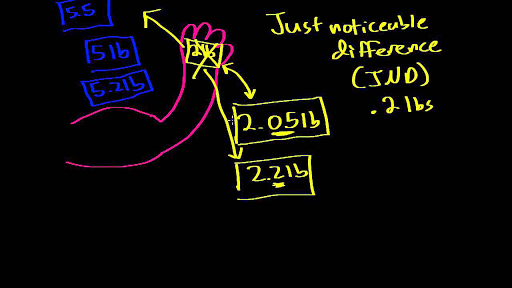 5.5
5 lb
5.2 lb
2 lb
Just noticeable
difference
(JND)
.2 lbs
2.05 lb
2.2 lb